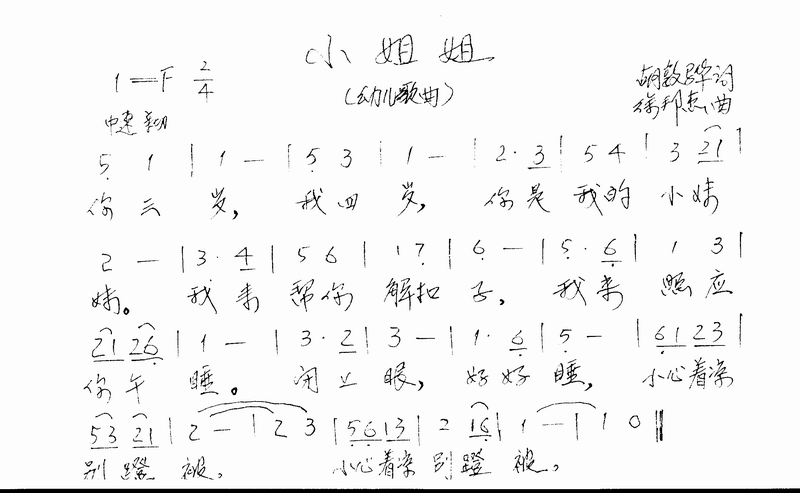 小姐姐
1=F 2/4
(幼儿歌曲)
胡敦骅词
中速 亲切
徐邦杰曲
5 1 | 1 — | 5 3 | 1 — | 2· 3 | 5 4 | 3 21 |
你三 岁, 我四 岁, 你是 我的 小妹
2 — | 3· 4 | 5 6 | 1 7 | 6 — | 5· 6 | 1 3 |
妹。 我来 帮你 解扣 子, 我来 照应
21 26 | 1 — | 3· 2 | 3 — | 1· 6 | 5 — | 61 23 |
你午 睡。 闭上 眼, 好好 睡, 小心着凉
53 21 | 2 — | 2 3 | 56 13 | 2 16 | 1 — | 1 0 ‖
别蹬 被, 小心着凉 别蹬 被。